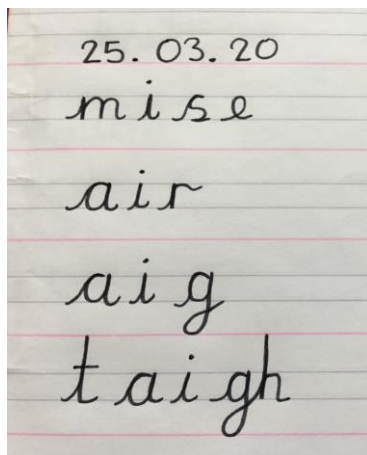 25.03.20
mise
air
aig
taigh